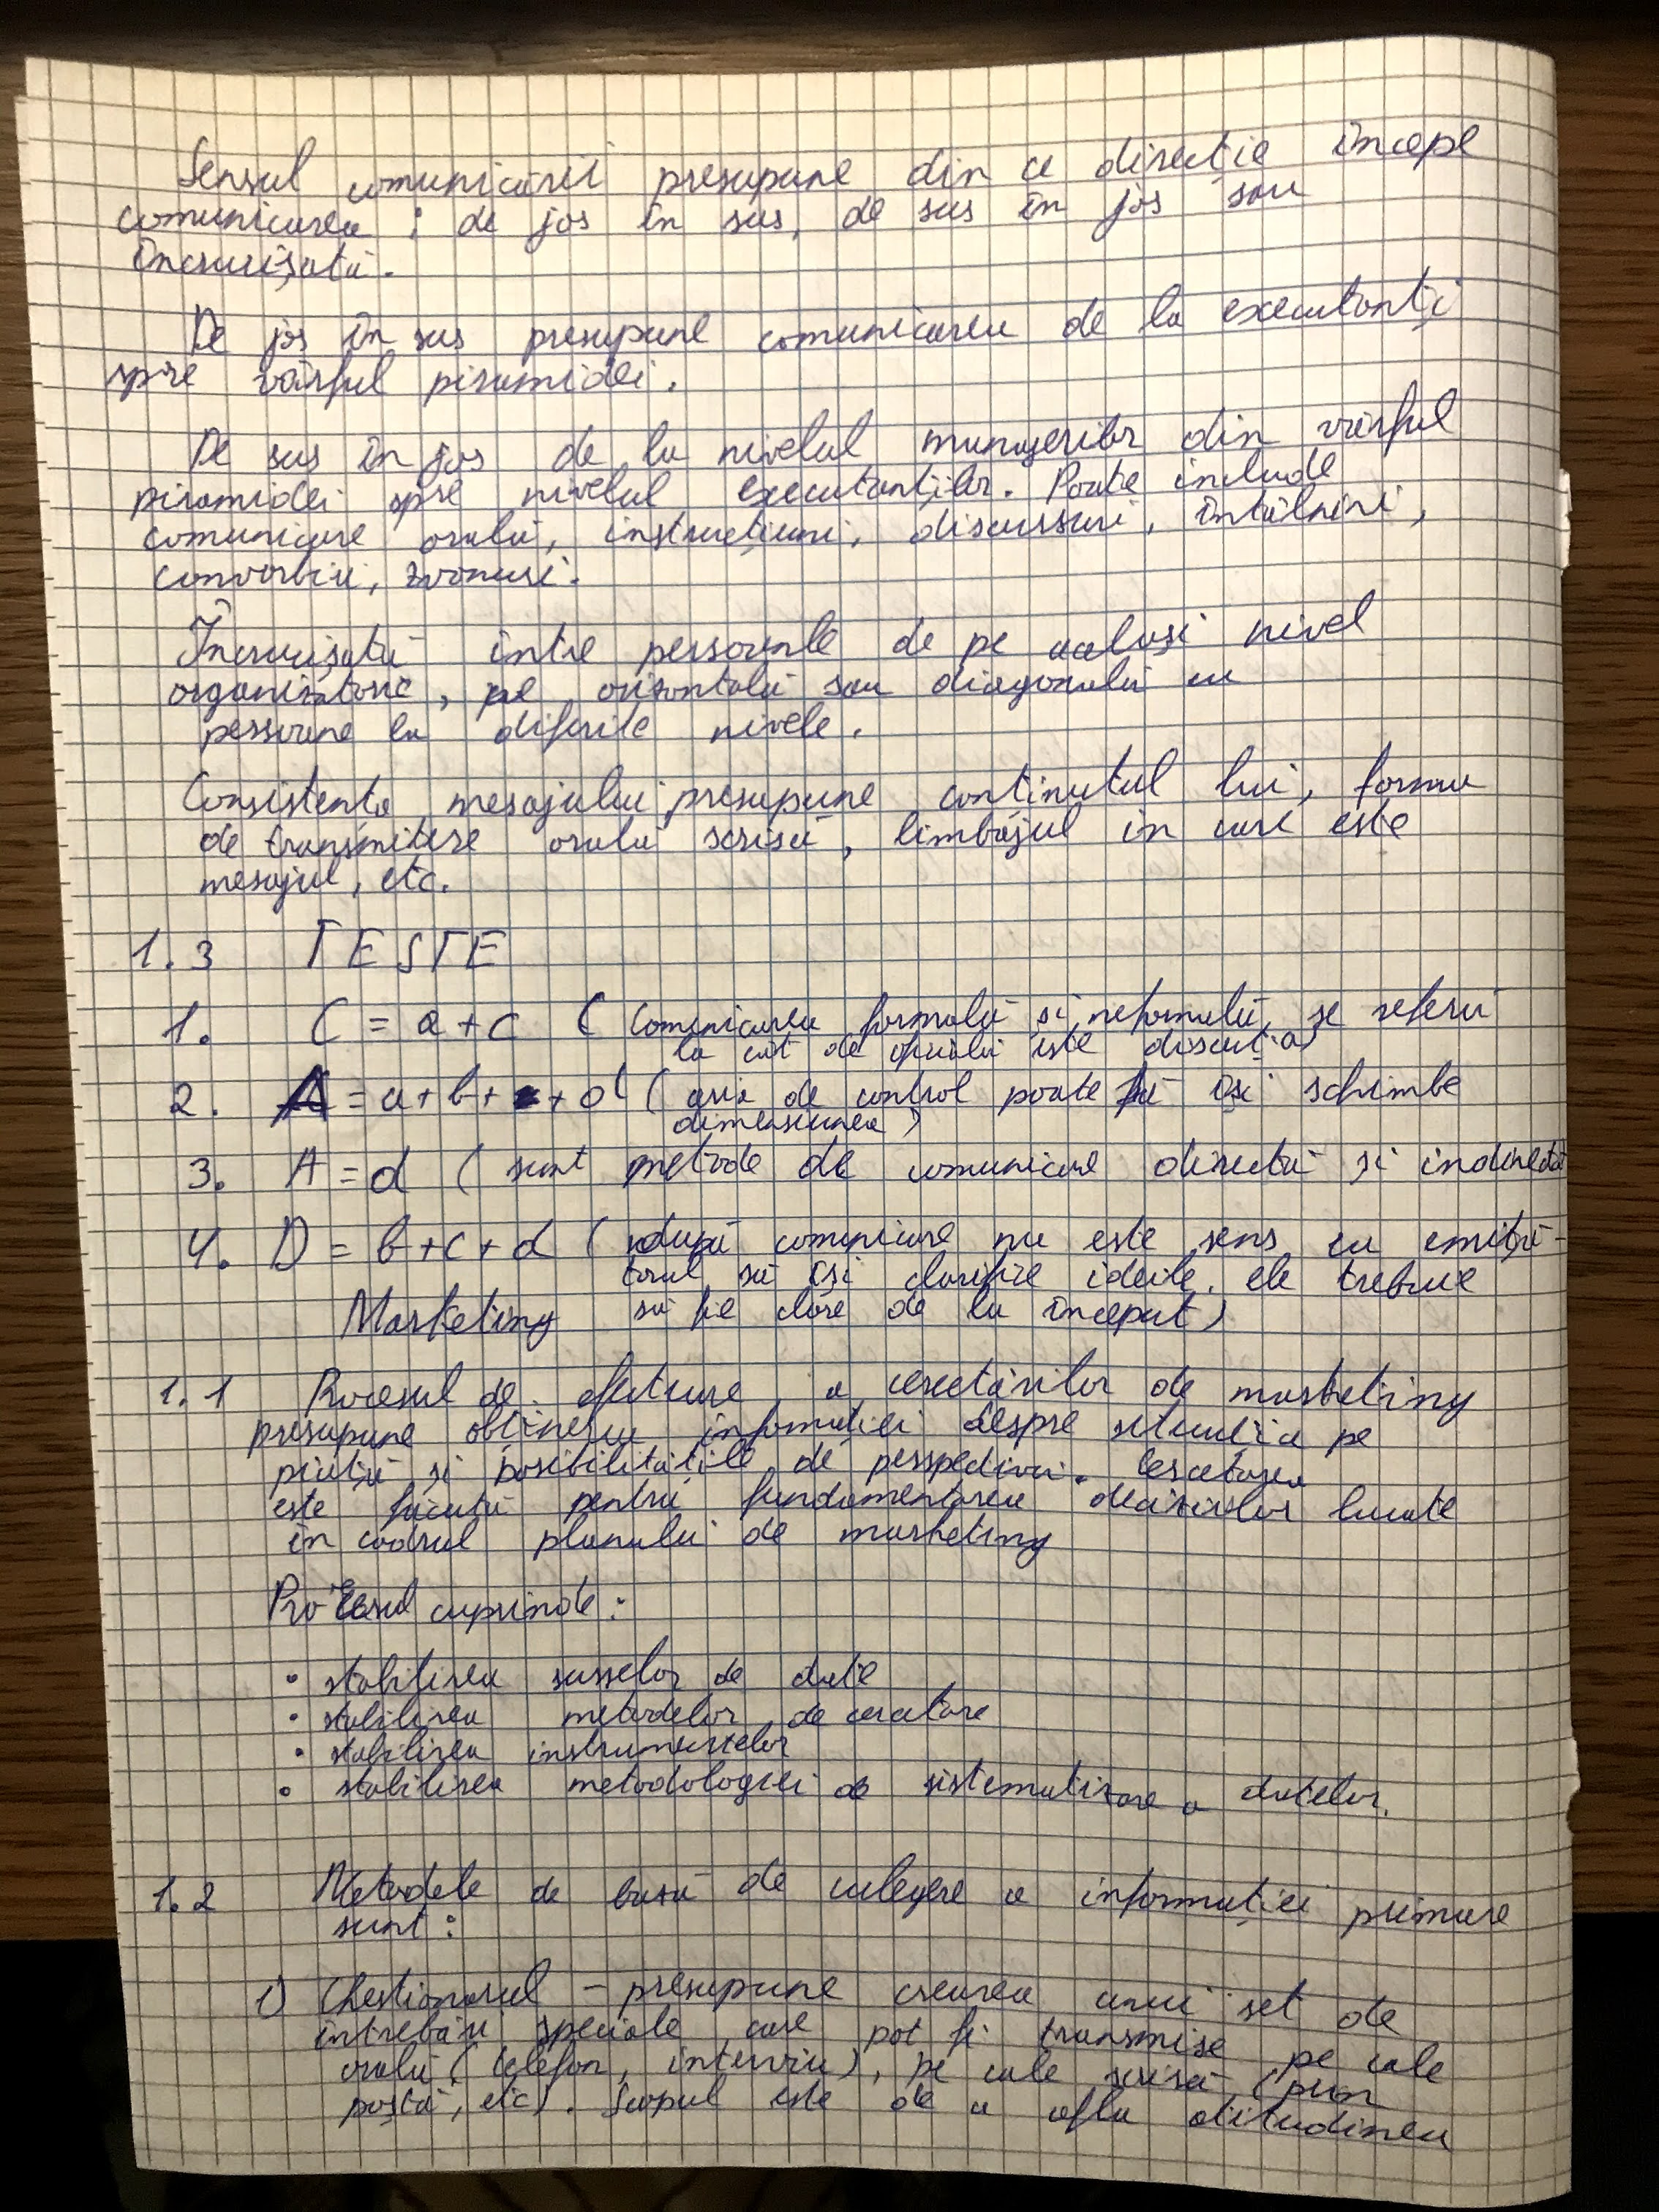 Sensul comunicării presupune din ce direcție începe
comunicarea : de jos în sus, de sus în jos sau
încrucișată.
De jos în sus presupune comunicarea de la executanți
spre vârful piramidei.
De sus în jos de la nivelul managerilor din vârful
piramidei spre nivelul executanților. Poate include
comunicare orală, instrucțiuni, discursuri, întâlniri,
convorbiri, zvonuri.
Încrucișată între persoanele de pe același nivel
organizatoric, pe orizontală sau diagonală cu
persoane la diferite nivele.
Consistența mesajului presupune conținutul lui, forma
de transmitere orală scrisă, limbajul în care este
mesajul, etc.
1.3 TESTE
1. C = a + c ( Comunicarea formală și neformală se referă
la cât de oficială este discuția)
2. A = a + b + c + d ( aria de control poate să își schimbe
dimensiunea )
3. A = d ( sunt metode de comunicare directă și indirectă
4. D = b + c + d ( după comunicare nu este sens ca emiță-
torul să își clarifice ideile, ele trebuie
Marketing să fie clare de la început)
1.1 Procesul de efectuare a cercetărilor de marketing
presupune obținerea informației despre situația pe
piață și posibilitățile de perspectivă. Cercetarea
este făcută pentru fundamentarea deciziilor luate
în cadrul planului de marketing
Procesul cuprinde :
• stabilirea surselor de date
• stabilirea metodelor de cercetare
• stabilirea instrumentelor
• stabilirea metodologiei de sistematizare a datelor.
1.2 Metodele de bază de culegere a informației primare
sunt :
1) Chestionarul – presupune crearea unui set de
întrebări speciale care pot fi transmise pe cale
orală ( telefon, interviu ), pe cale scrisă (prin
poștă, etc). Scopul este de a afla atitudinea